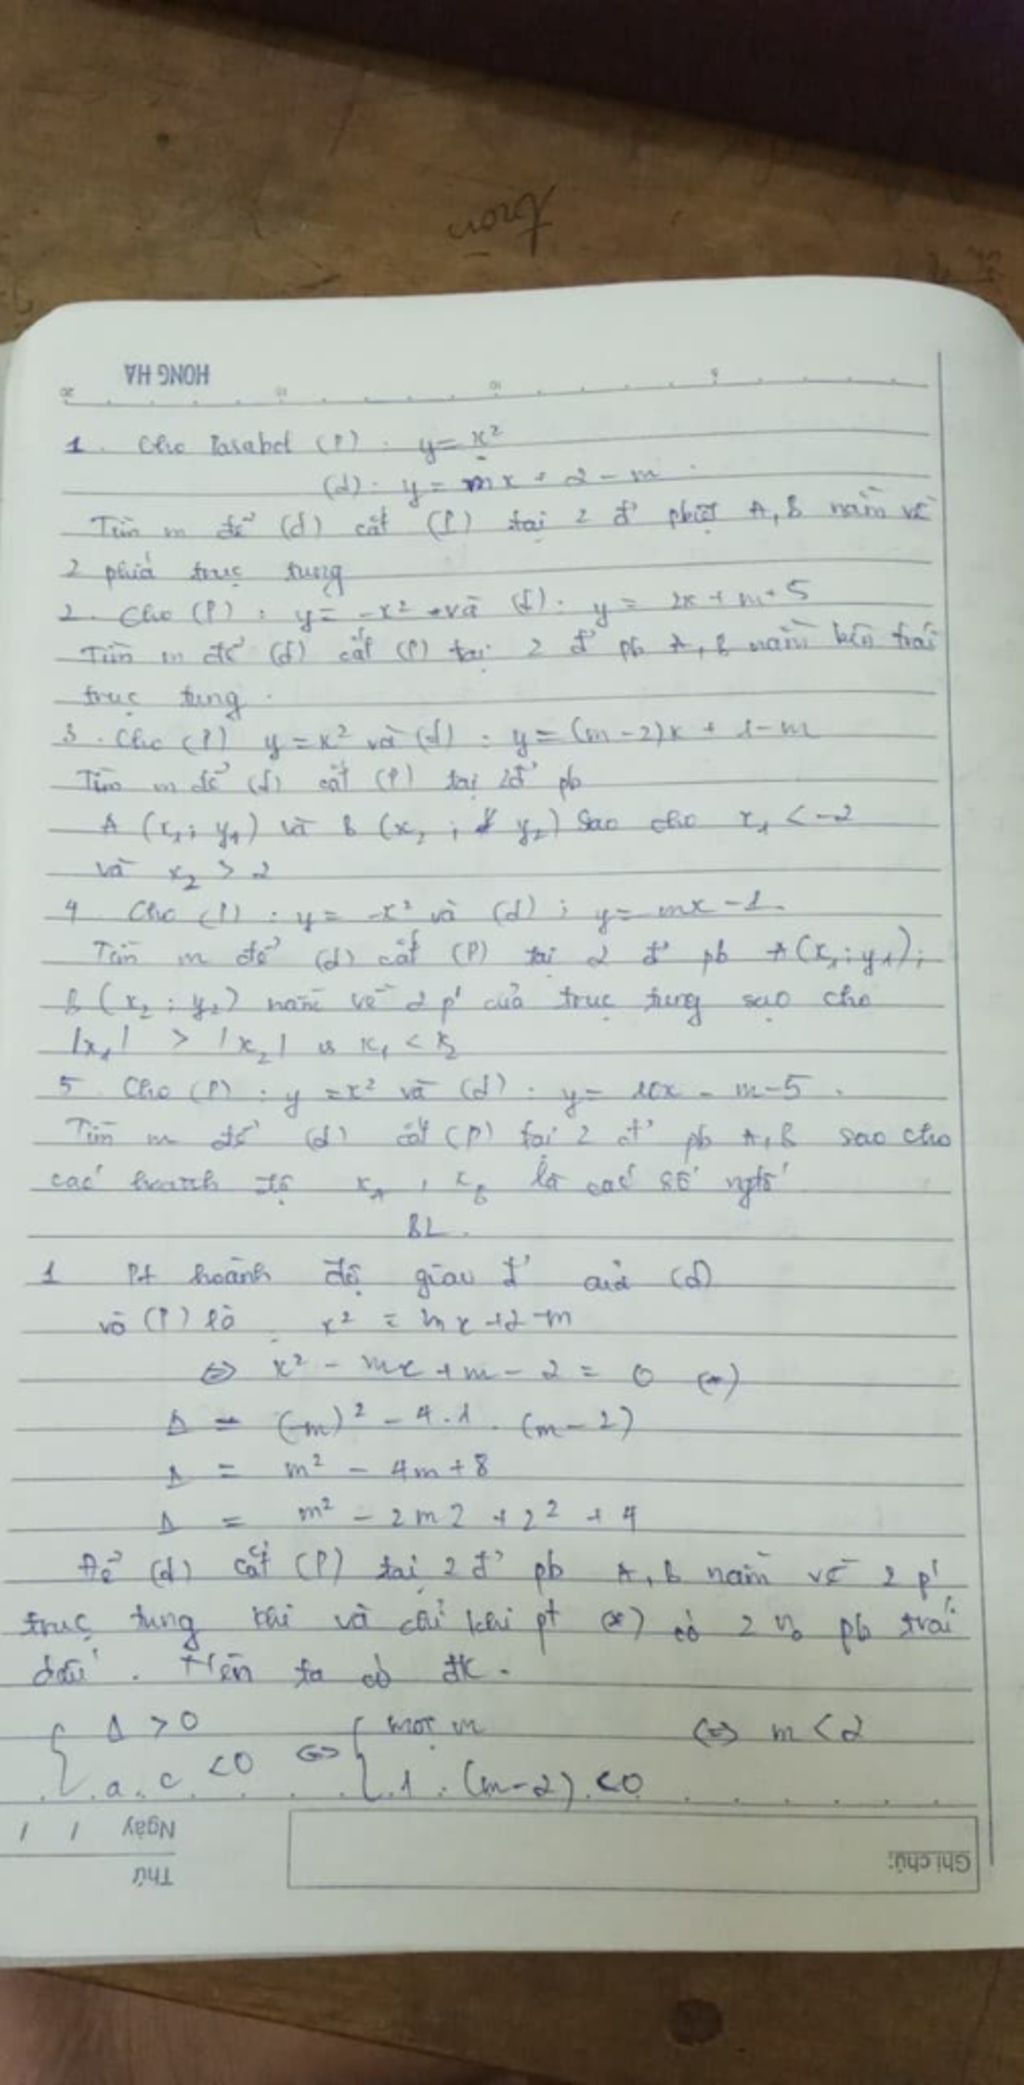 HONG HA
1. Cho Parabol (P): y = x²
(d): y = mx + 2 - m.
Tìm m để (d) cắt (P) tại 2 đ' phật A, B nằm về
2 phía trục tung
2. Cho (P): y = -x² và (d): y = 2x + m + 5
Tìm m để (d) cắt (P) tại 2 đ' pb A, B nằm bên trái
trục tung.
3. Cho (P) y = x² và (d): y = (m-2)x + 1 - m
Tìm m để (d) cắt (P) tại 2đ' pb
A (x₁; y₁) và B (x₂; y₂) sao cho x₁ < -2
và x₂ > 2
4. Cho (P): y = -x² và (d); y = mx - 1.
Tìm m để (d) cắt (P) tại 2 đ' pb A(x₁; y₁);
B (x₂; y₂) nằm về 2 p' của trục tung sao cho
|x₁| > |x₂| và x₁ < x₂
5 Cho (P): y = x² và (d): y = 10x - m - 5.
Tìm m để (d) cắt (P) tại 2 đ' pb A, B sao cho
các hoành độ x_A, x_B là các số ngtố
BL.
1 Pt hoành độ giao đ' của (d)
và (P) là x² = mx + 2 - m
⇔ x² - mx + m - 2 = 0 (*)
Δ = (-m)² - 4.1.(m-2)
Δ = m² - 4m + 8
Δ = m² - 2m2 + 2² + 4
Để (d) cắt (P) tại 2 đ' pb A, B nằm về 2 p'
trục tung khi và chỉ khi pt (*) có 2 no pb trái
dấu. Nên ta có đk.
{ Δ > 0 ⇔ { mọi m ⇔ m < 2
a.c < 0 1.(m-2) < 0
Ngày / /
Thứ
Ghi chú: